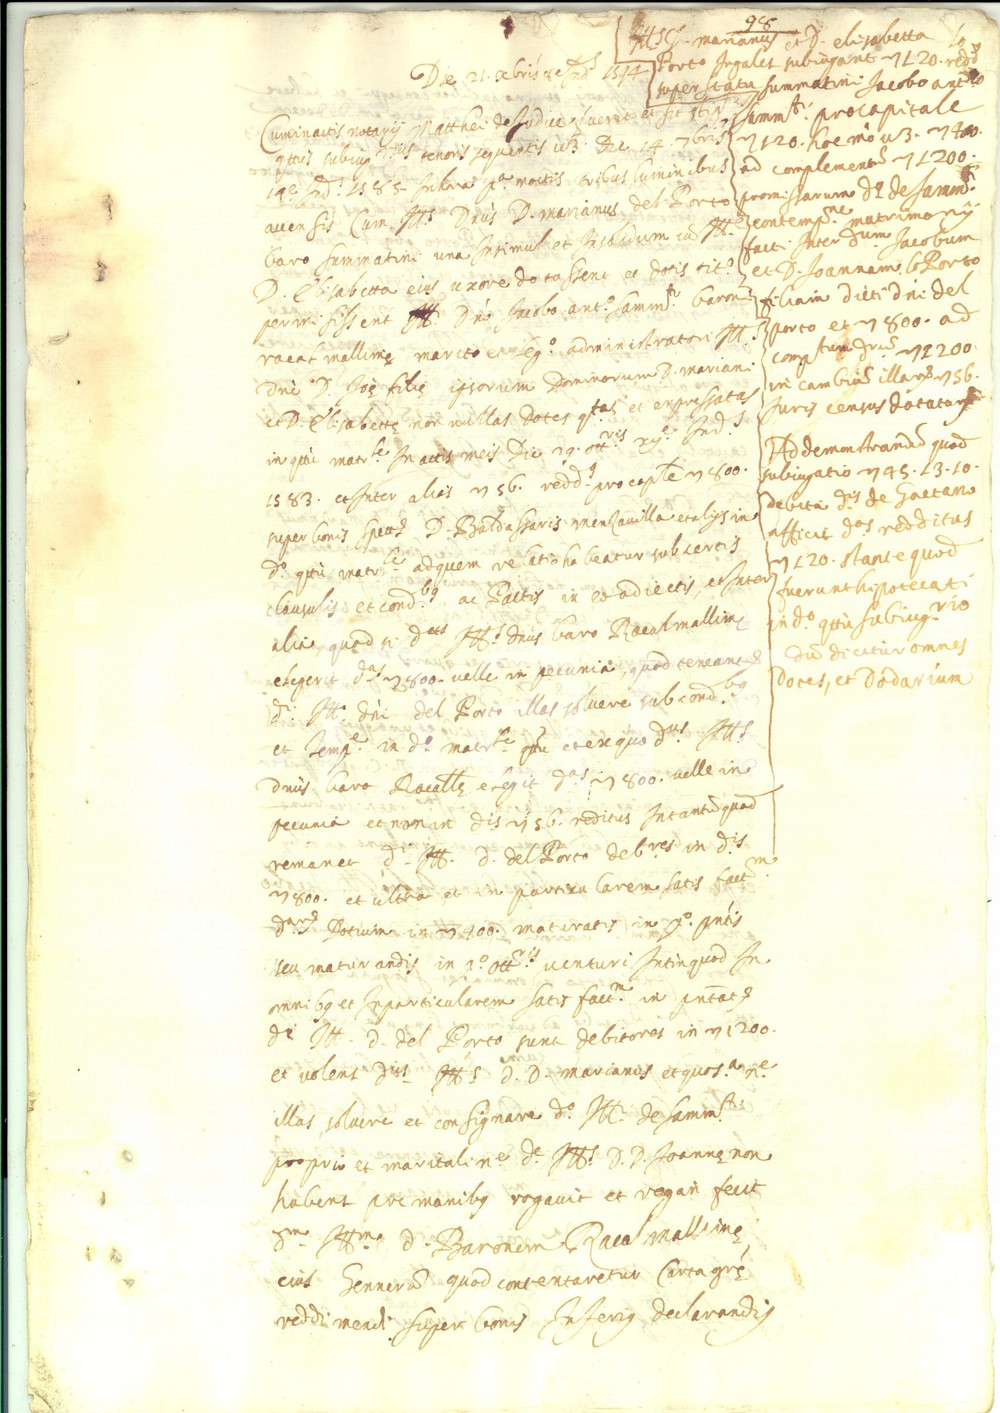 98
Die 21. xbris 3e Ind.s 1594
Cum in actis notarij Matthei de Judice fuerit et sit
q̃ttus subiug.nis tenoris sequentis u3. Die 14 7bris
14e Ind. 1585
avensis Cum Ill.s Dñus D. marianus del Porto
baro summatini una Insimul et Insolidum cũ Ill.
D. Elisabetta eius uxore dotassent et dotis tit.o
permisissent Ill. Dño Jacobo ant.o samm.to baroni
racalmallimę marito et leg.o administratori Ill.
Dñe D. Joẽ filie ipsorum Dominorum D. mariani
et D. Elisabettę non nullas dotes q.tas et expressatas
in q̃ttu matr.le In actis meis Die 29. ott.ris xij.e Ind.s
1583. et Inter alias 56. redd.s pro cap.le 800.
super bonis spett. D. Baldassaris menzavilla et alijs in
d.o q̃ttu matr.le ad quem relatio habeatur sub certis
clausulis et cond.bq ac Pactis in eo adiectis, et Inter
alia, quod si d.ctus Ill.s dñus baro Racalmallimę
elegerit d.as 800. velle in pecunia, quod teneant.r
d.i Ill. dñi del Porto illas solvere sub cond.bq
et temp.e in d.o matr.le q̃ttu et ex quo d.tus Ill.s
Dñus baro Racal.tę elegit d.as 800. velle in
pecunia et non in dis 56. reditus Intantũ quod
remanet d.i Ill. d. del Porto deb.res in d.is
800. et ultra et in particularem satis fact.m
Dotium in 400. maturatis in p.o pñtis
seu maturandis in p.o ott.ris venturi Intinquod In
omnibq et Inparticularem satis fact.m in pñtat.
di Ill. d. del Porto sunt debitores in 1200.
et volens d.tus Ill.s d. D. marianus et quos.a n.e
illas solvere et consignare d.o Ill. de samm.to
proprio et maritali n.e d.e Ill.s D. D. Joannę non
habens pre manibq rogavit et rogari fecit
d.m Ill.m d. Baronem Racalmallimę
eius Generũ quod contentaretur Carta grẽ
reddimendi super bonis Inferiq declarandis
Ill.s D. marianus et D. elisabetta lo
Porto Jugales subiugant 120. redd.s
super statu summatini Jacobo ant.o
samm.to pro capitale
1120. hoc mõ u3. 400.
ad complementũ 1200.
promissarum d.o de samm.to
contemp.ne matrimonij
facti Inter d.um Jacobum
et D. Joannam lo Porto
filiam dicti dñi del
porto et 800. ad
comp.tum 1200.
in cambiũ illarũ 56.
Juris census dotatarũ
Ad demonstrandũ quod
subiugatio 45. 13. 10.
debita d.is de Gaetano
afficit d.os redditus
120. stante quod
fuerunt hipotecati
in d.o q̃ttu subiug.rio
dũ dicitur omnes
Dotes, et Dodarium